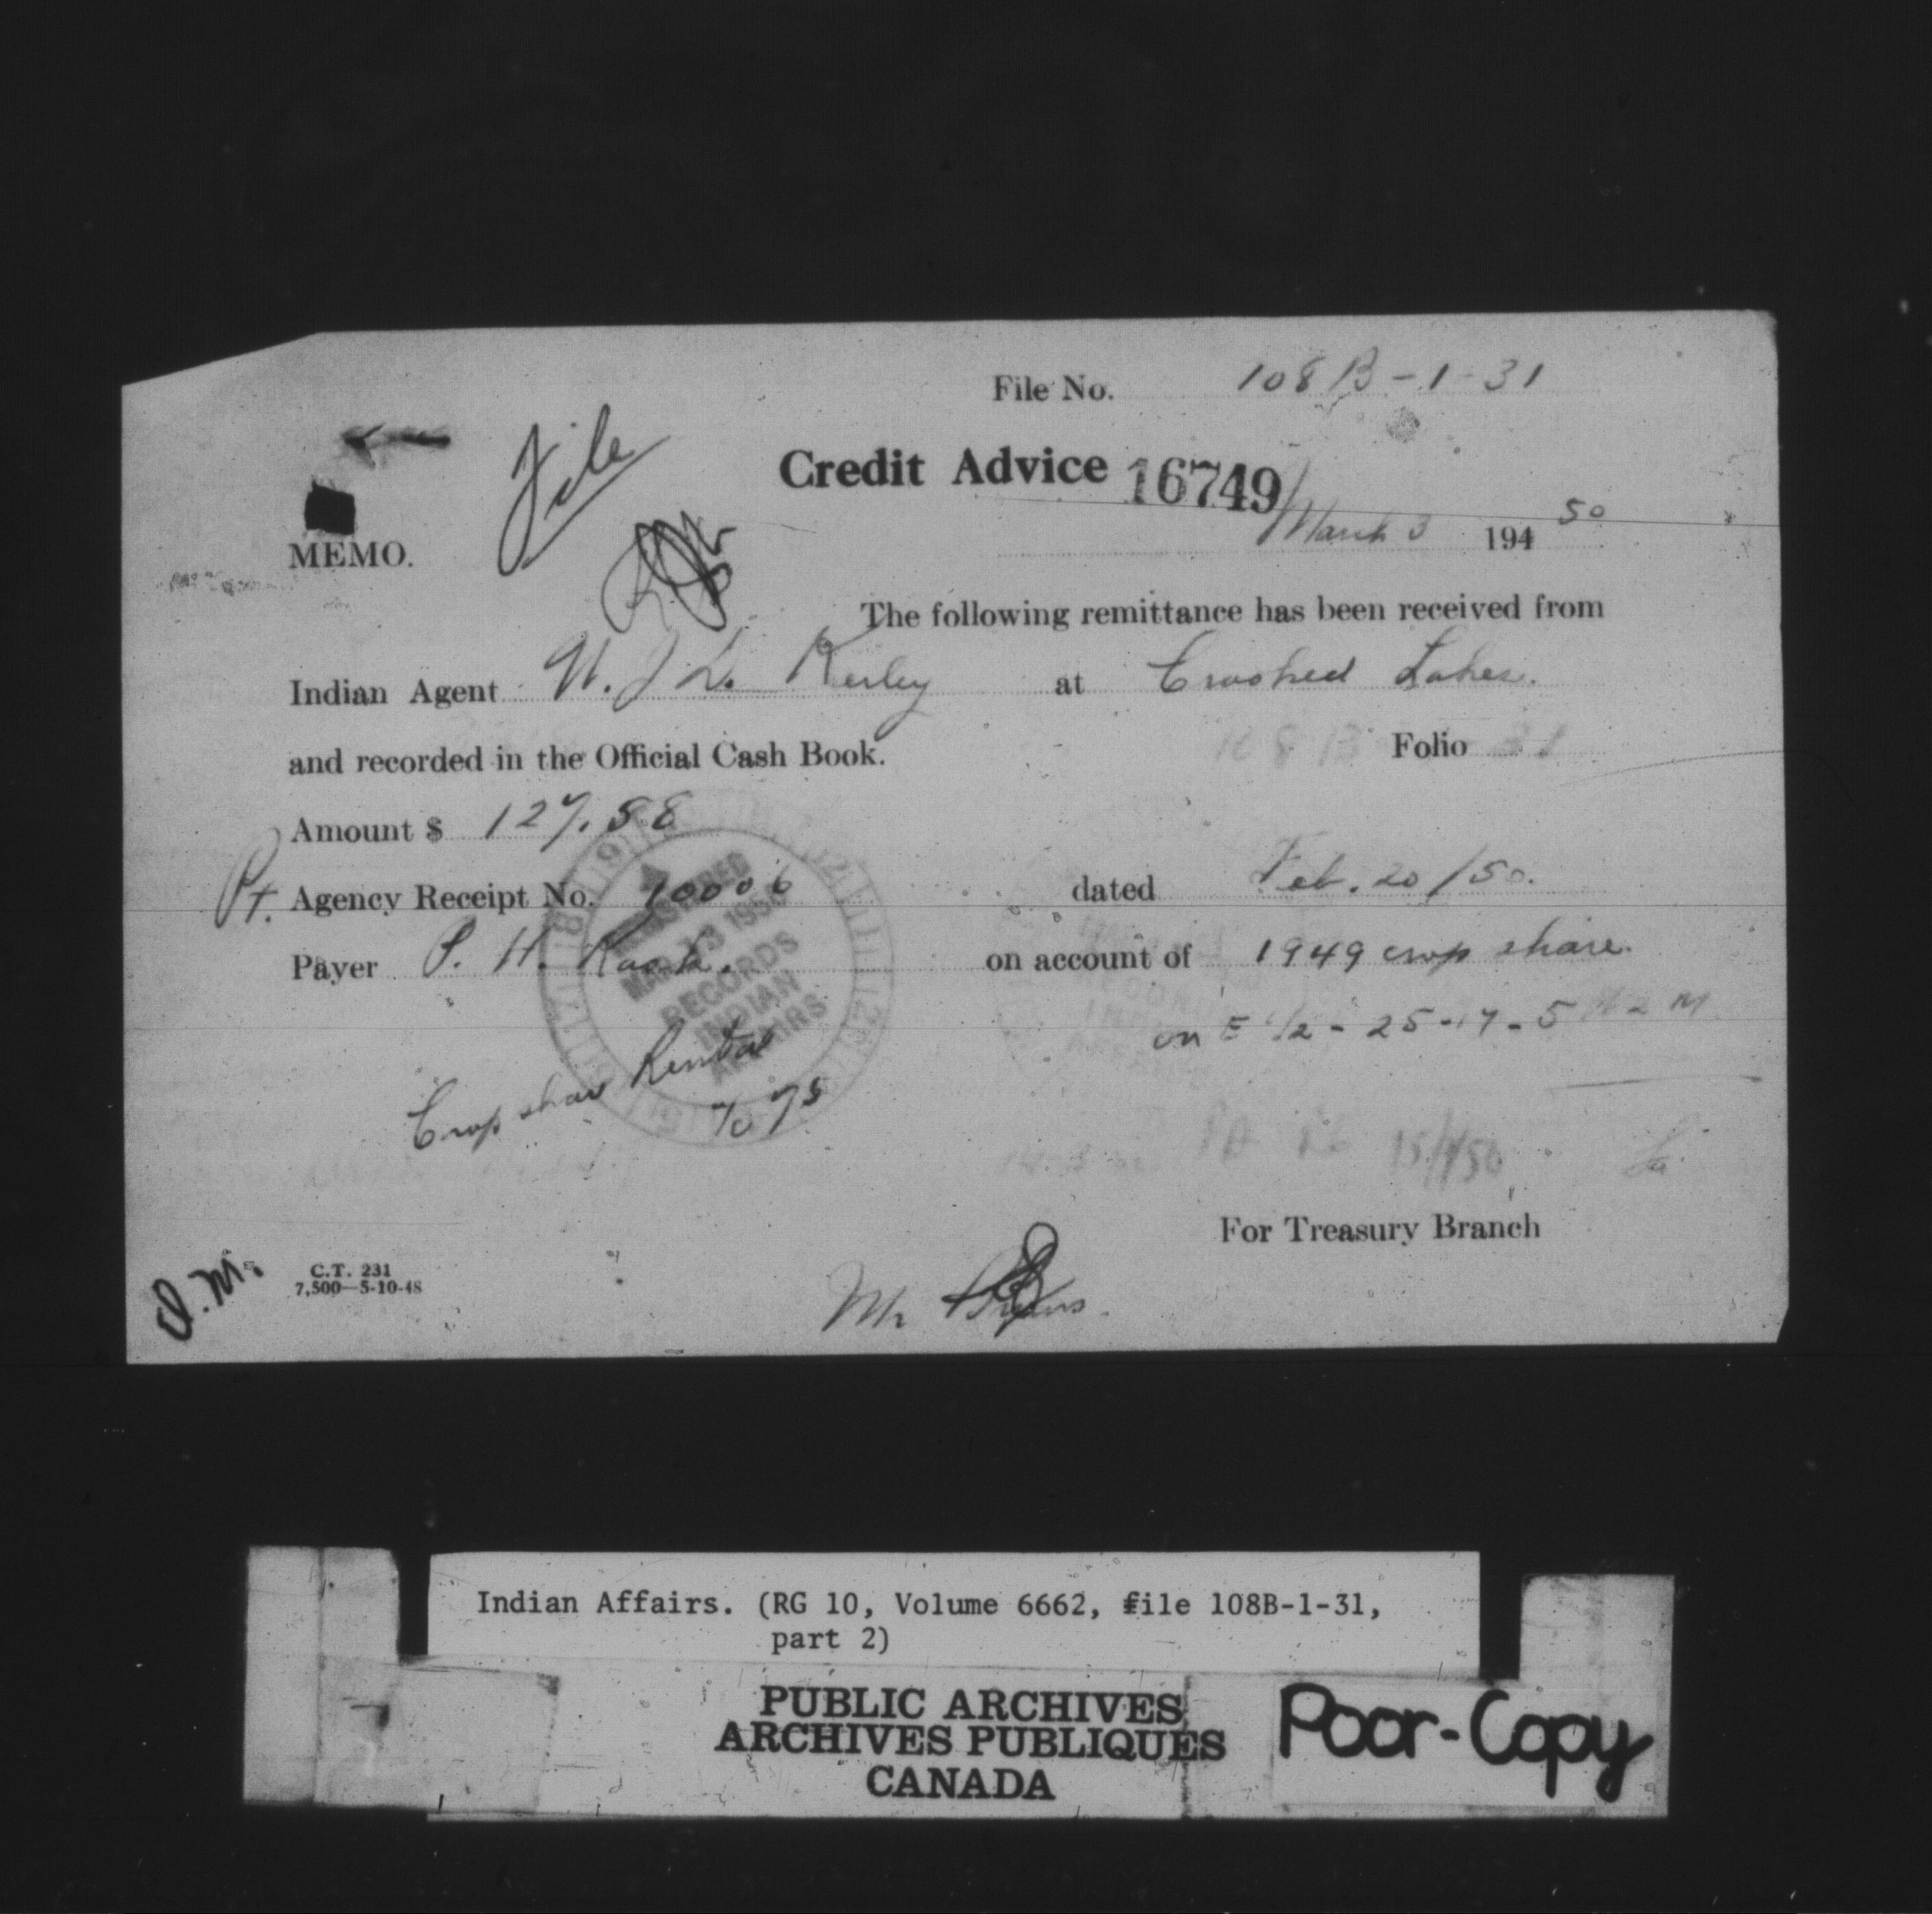 File No. 108 B-1-31
File
Credit Advice 16749
March 3 194 50
MEMO.
The following remittance has been received from
Indian Agent J. L. Kerley at Crooked Lakes.
and recorded in the Official Cash Book. Folio
Amount $ 127.58
Pt. Agency Receipt No. 10006 dated Feb. 20/50.
Payer P. H. on account of 1949 crop share.
on E 1/2 - 25-17-5 W 2 M
REGISTERED
MAR 13 1950
RECORDS
INDIAN
AFFAIRS
Crop share Rental
15/4/50
For Treasury Branch
D.M.
C.T. 231
7,500—5-10-48
Mr
Indian Affairs. (RG 10, Volume 6662, file 108B-1-31,
part 2)
PUBLIC ARCHIVES
ARCHIVES PUBLIQUES
CANADA
Poor-Copy